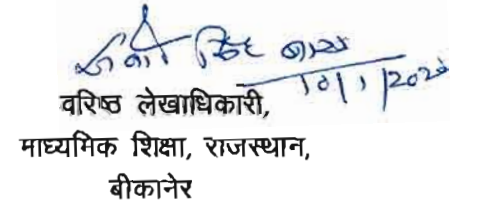 10/1/2020
वरिष्ठ लेखाधिकारी,
माध्यमिक शिक्षा, राजस्थान,
बीकानेर